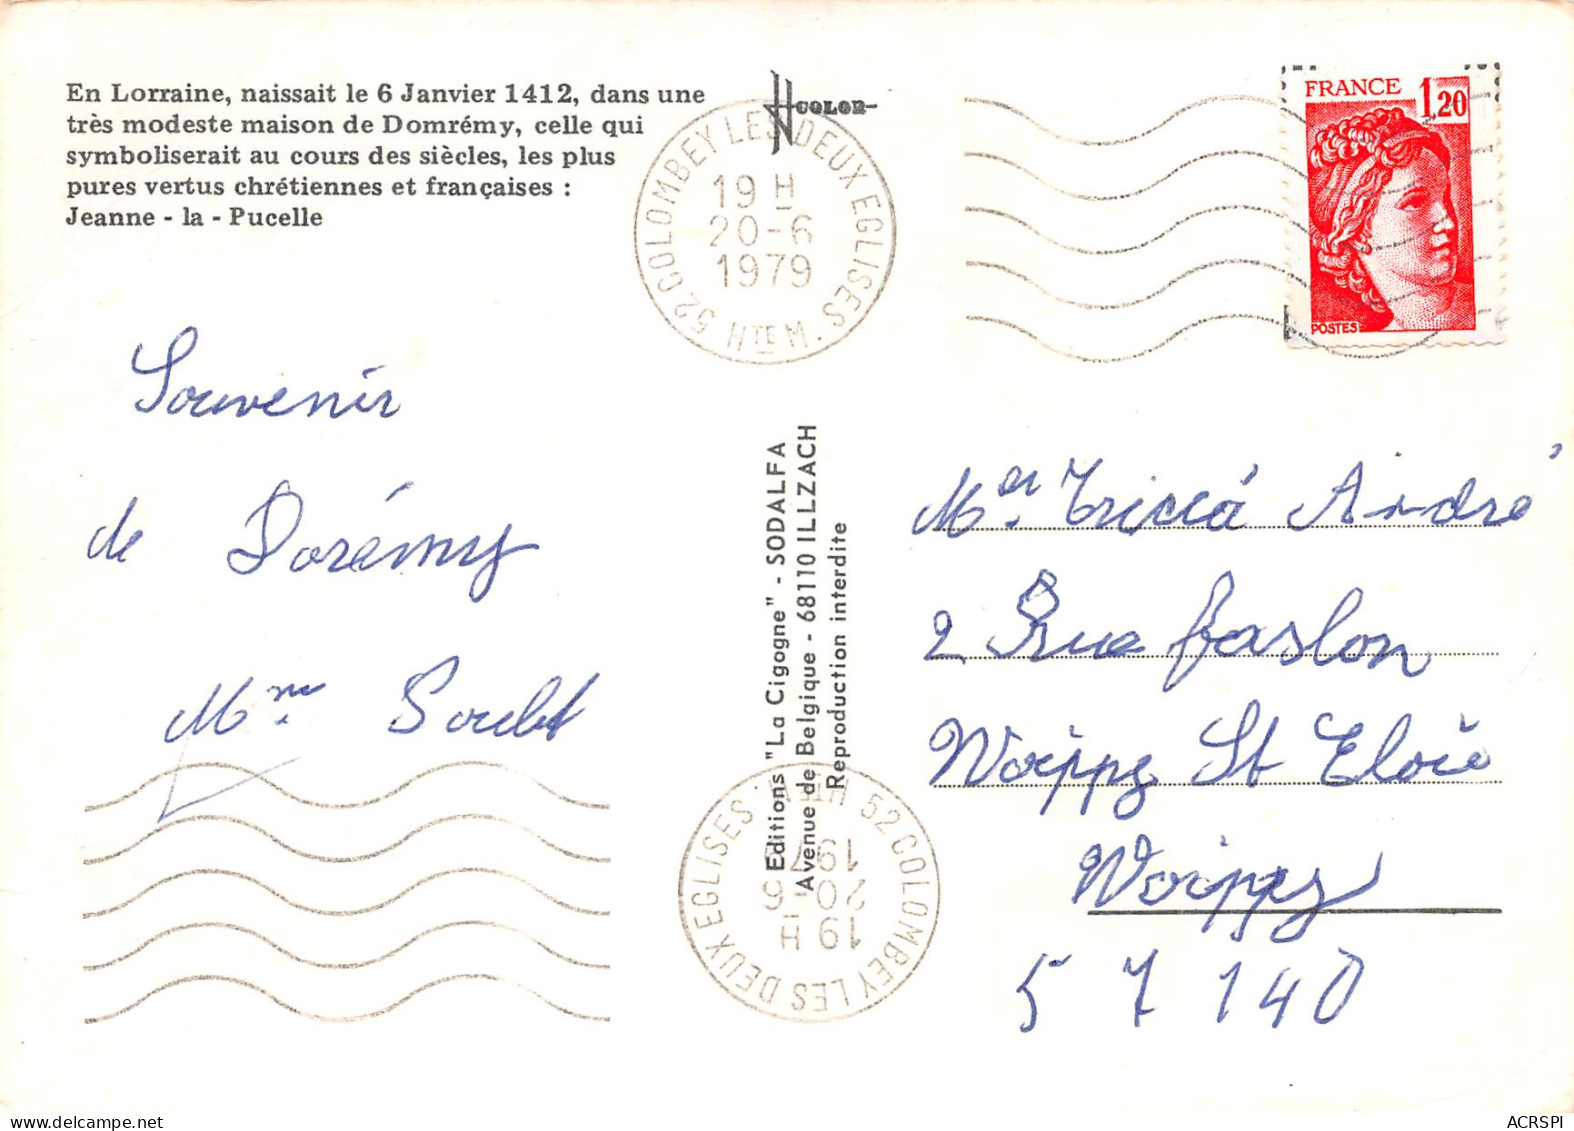 En Lorraine, naissait le 6 Janvier 1412, dans une
très modeste maison de Domrémy, celle qui
symboliserait au cours des siècles, les plus
pures vertus chrétiennes et françaises :
Jeanne - la - Pucelle
COLOR
52 COLOMBEY LES DEUX EGLISES HTE M.
19 H
20-6
1979
FRANCE 1,20
POSTES
Souvenir
de Dorémy
Mme
Editions "La Cigogne" - SODALFA
Avenue de Belgique - 68110 ILLZACH
Reproduction interdite
André
2 Rue
Woippy St Eloie
Woippy
57140
52 COLOMBEY LES DEUX EGLISES HTE M.
19 H
20-6
1979
ACRSPI